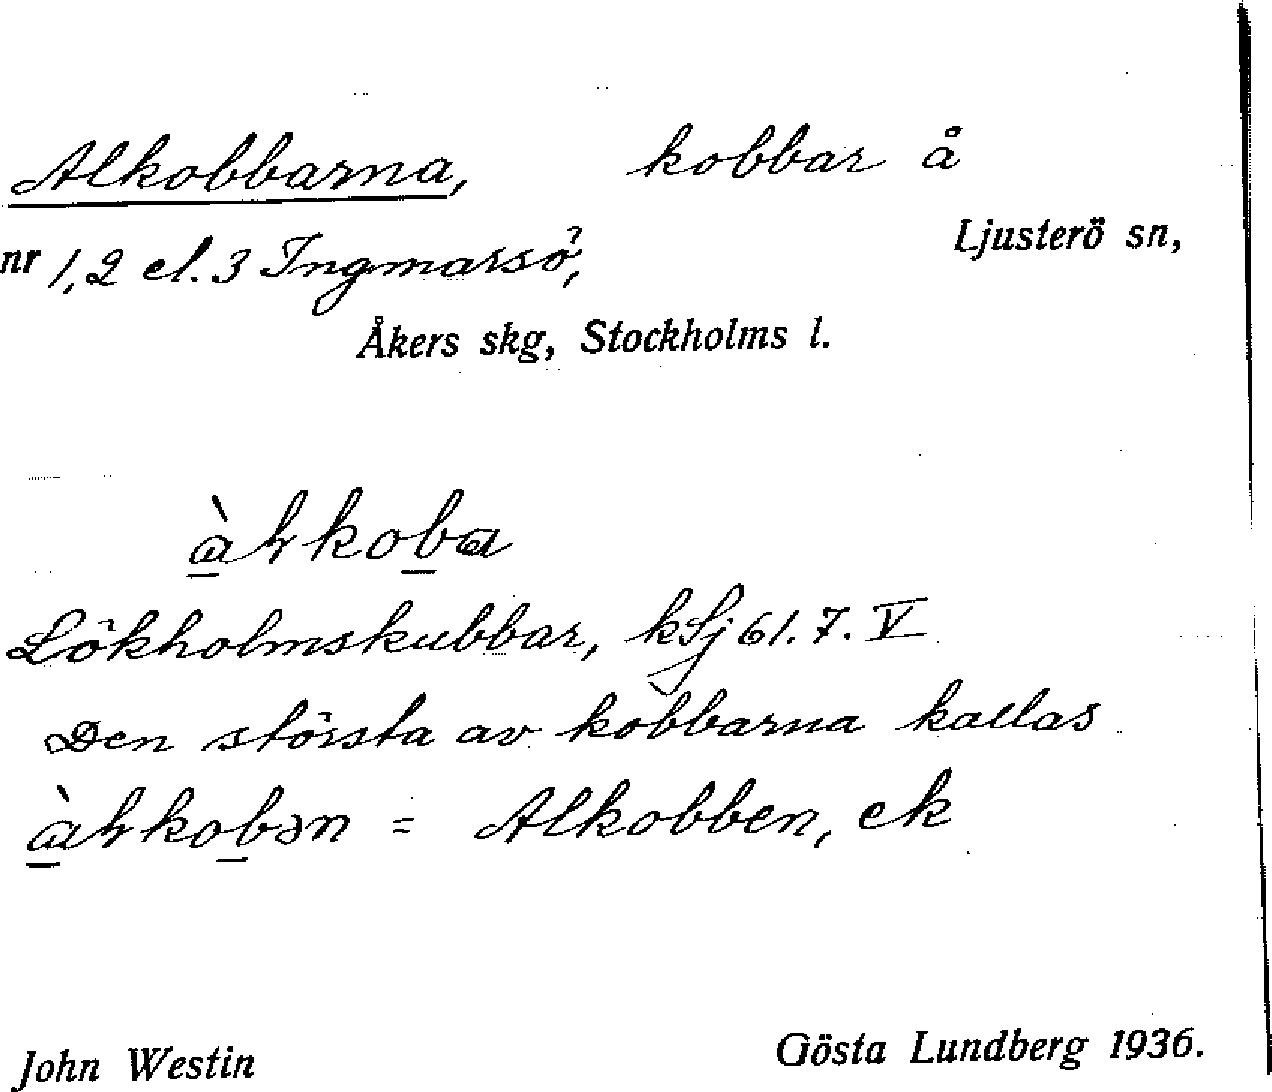 Alkobbarna, kobbar å
nr 1,2 el. 3 Ingmarsö, Ljusterö sn,
Åkers skg, Stockholms l.
Lökholmskubbar, kSj 61.7.V
Den största av kobbarna kallas
= Alkobben, ek
John Westin Gösta Lundberg 1936.